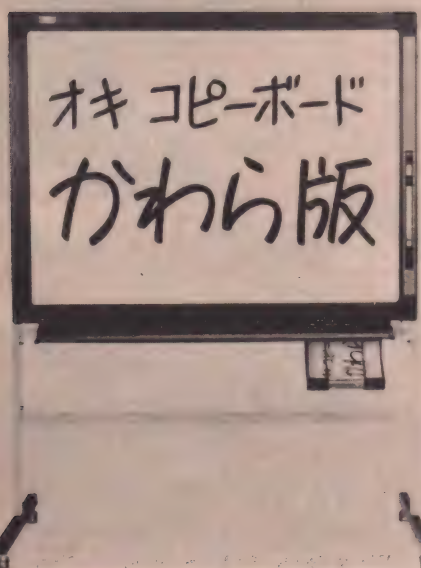 オキ コピーボード
かわら版